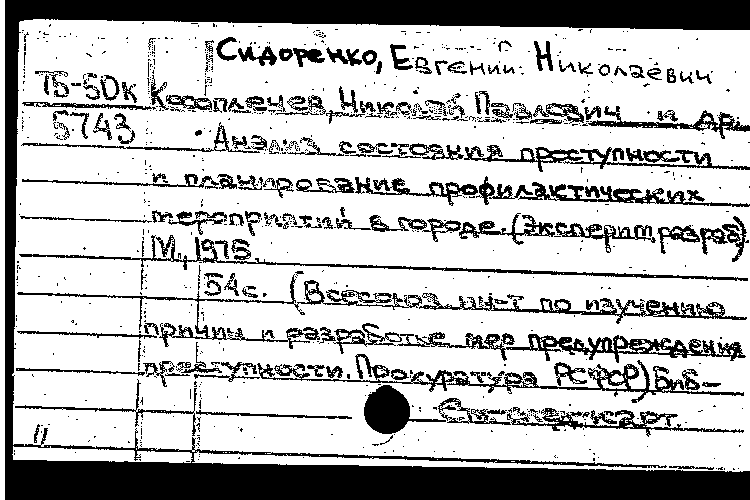 Сидоренко, Евгений Николаевич
ТБ-50к Косоплечев, Николай Павлович и др.
5743 Анализ состояния преступности
и планирование профилактических
мероприятий в городе. (Эксперим. разраб).
М., 1975.
54с. (Всесоюз. ин-т по изучению
причин и разработке мер предупреждения
преступности. Прокуратура РСФСР) Биб-
11